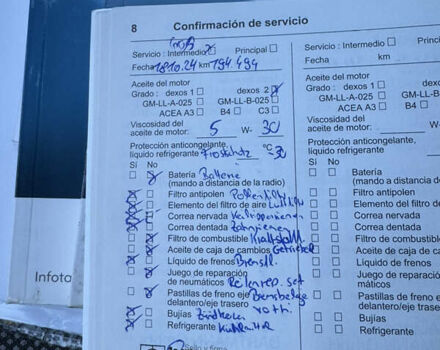 8 Confirmación de servicio
Servicio : Intermedio Principal
Servicio : Intermedio Principal
Fecha 18.10.24 km 194.494
Fecha km
Aceite del motor
Grado : dexos 1 dexos 2
GM-LL-A-025 GM-LL-B-025
ACEA A3 B4 C3
Aceite del motor
Grado : dexos 1
GM-LL-A-025
ACEA A3 B4
Viscosidad del
aceite de motor: 5 W- 30
Viscosidad del
aceite de motor:
Protección anticongelante,
líquido refrigerante Frostschutz °C -30
Protección anticongelante,
líquido refrigerante
Sí No
Batería Batterie
(mando a distancia de la radio)
Filtro antipolen Pollenfilter
Elemento del filtro de aire Luftfilter
Correa nervada Keilrippenriemen
Correa dentada Zahnriemen
Filtro de combustible Kraftstoff
Aceite de caja de cambios Getriebeöl
Líquido de frenos Bremsfl.
Juego de reparación
de neumáticos Reifenrep. set
Pastillas de freno eje Bremsbeläge
delantero/eje trasero
Bujías Zündkerzen
Refrigerante Kühlmittel
Sello y firma
Sí No
Batería
(mando a distancia
Filtro antipolen
Elemento del filtro
Correa nervada
Correa dentada
Filtro de combustible
Aceite de caja de
Líquido de frenos
Juego de reparación
máticos
Pastillas de freno
delantero/eje
Bujías
Refrigerante
Infota